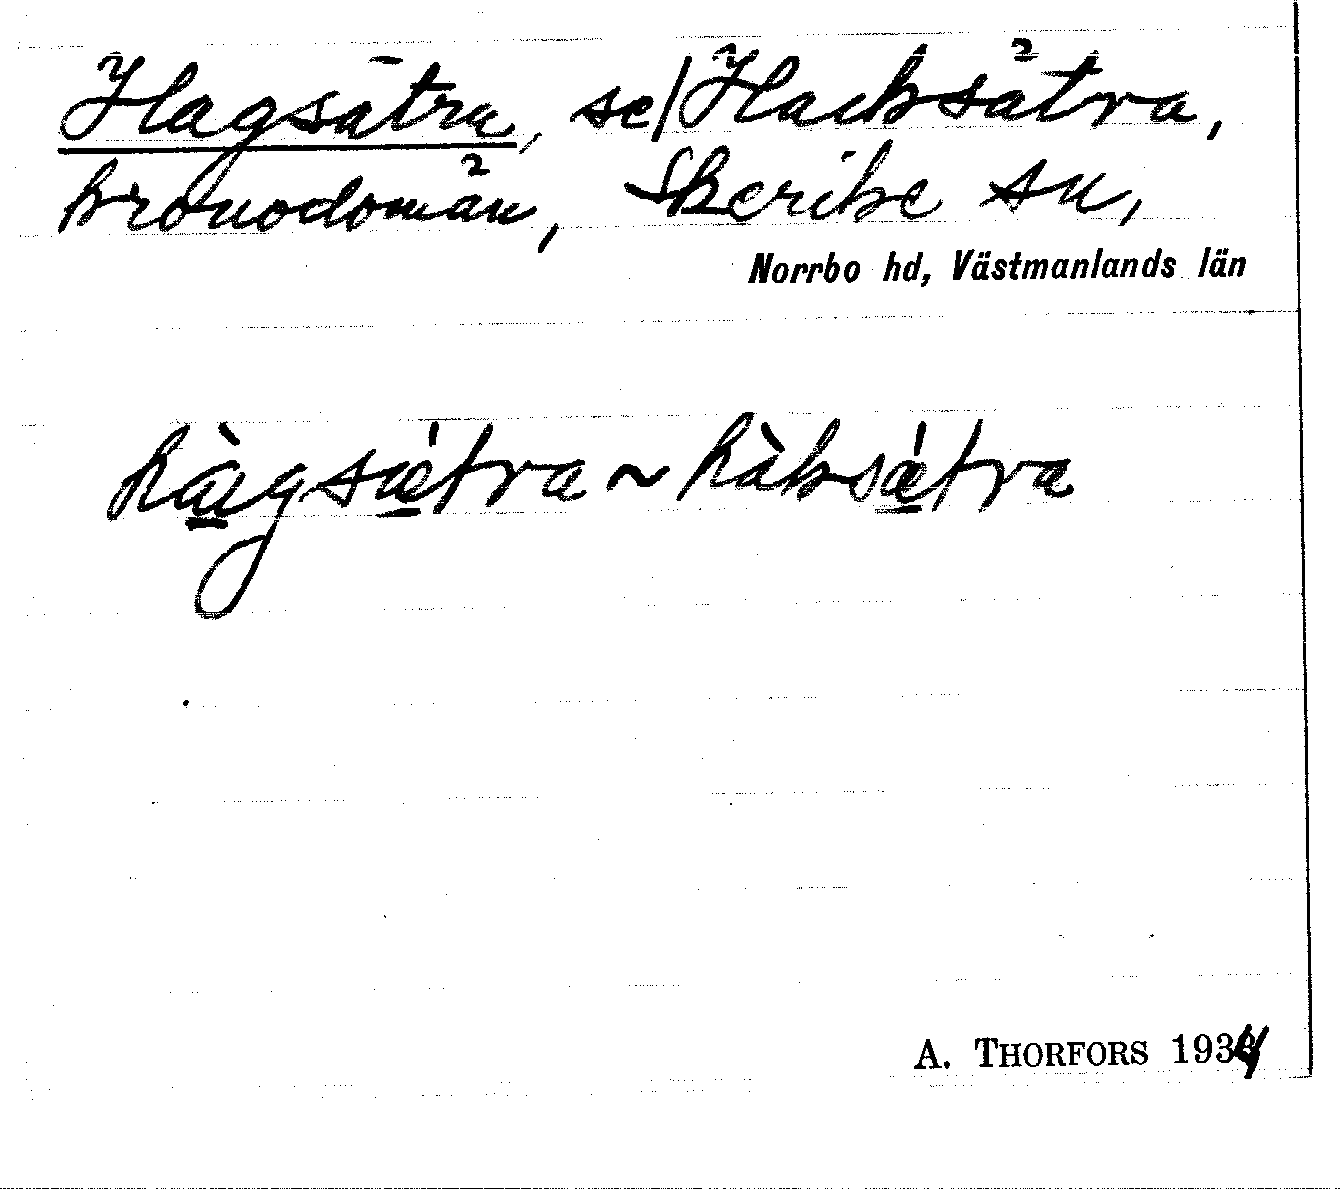 Hagsätra, se/Hacksätra,
kronodomän, Skerike sn,
Norrbo hd, Västmanlands län
hàgsǽtra ~ hàksǽtra
A. THORFORS 1934